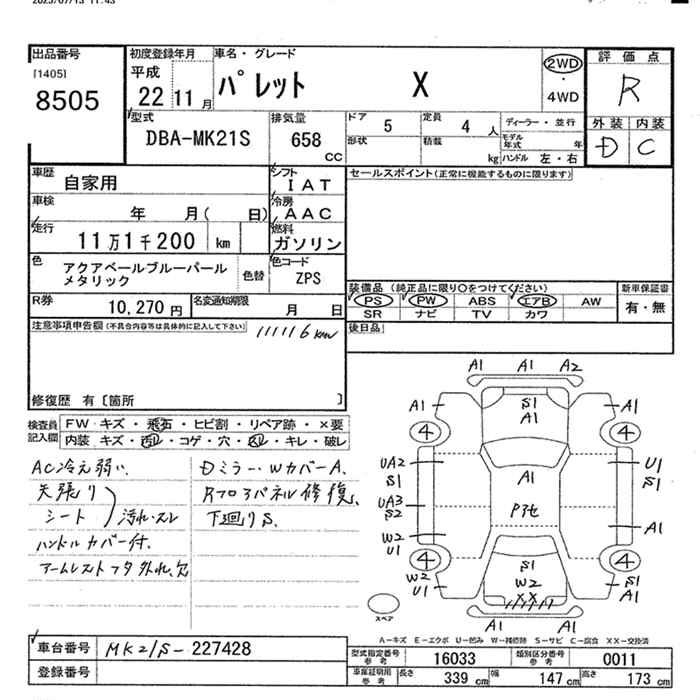 2025/07/15 11:43
出品番号 [1405] 8505
初度登録年月 平成 22 11 月
車名・グレード パレット X
2WD ・ 4WD
評価点 R
外装 D 内装 C
型式 DBA-MK21S
排気量 658 CC
ドア 5 定員 4 人
形状 積載 kg
ディーラー・並行
モデル年式 年
ハンドル 左・右
車歴 自家用
車検 年 月( 日)
走行 11万1千200 km
シフト IAT
冷房 AAC
燃料 ガソリン
セールスポイント(正常に機能するものに限ります)
色 アクアベールブルーパール
メタリック
色替
色コード ZPS
R券 10,270 円
名変通知期限 月 日
装備品(純正品に限り○をつけてください)
PS PW ABS エアB AW
SR ナビ TV カワ
新車保証書 有・無
後日品
注意事項申告欄(不具合内容等は具体的に記入して下さい)
111116km
修復歴 有〔箇所 〕
検査員記入欄
FW キズ・飛石・ヒビ割・リペア跡・×要
内装 キズ・汚レ・コゲ・穴・スレ・キレ・破レ
AC冷え弱い、
天張り
シート 汚れ・スレ
ハンドルカバー付、
アームレストフタ外れ、欠
Dミラー・WカバーA、
下廻りS、
A1 A1 A2
A1 S1 A1 A1
4 4
UA2 S1 A1 U1 S1
UA3 S2 P他
W2 U1 A1
4 S1 W2 XX 4
W2 U1 S1 A1
A1 A1
スペア
A-キズ E-エクボ U-凹み W-補修跡 S-サビ C-腐食 XX-交換済
車台番号 MK21S-227428
登録番号
型式指定番号 参考 16033 類別区分番号 参考 0011
車庫証明用 参考 長さ 339 cm 幅 147 cm 高さ 173 cm